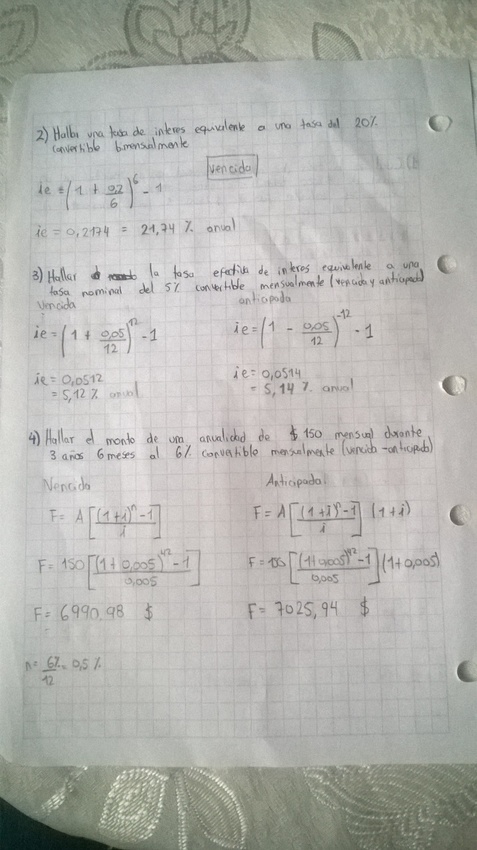 2) Halla una tasa de interes equivalente a una tasa del 20%
convertible bimensualmente
Vencida
ie = (1 + 0,2/6)^6 - 1
ie = 0,2174 = 21,74 % anual
3) Hallar la tasa efectiva de interes equivalente a una
tasa nominal del 5% convertible mensualmente (vencida y anticipada)
Vencida
ie = (1 + 0,05/12)^12 - 1
ie = 0,0512
= 5,12 % anual
anticipada
ie = (1 - 0,05/12)^-12 - 1
ie = 0,0514
= 5,14 % anual
4) Hallar el monto de una anualidad de $ 150 mensual durante
3 años 6 meses al 6% convertible mensualmente (vencido - anticipado)
Vencida
F = A [((1+i)^n - 1)/i]
F = 150 [((1 + 0,005)^42 - 1)/0,005]
F = 6990,98 $
Anticipada
F = A [((1+i)^n - 1)/i] (1+i)
F = 150 [((1+0,005)^42 - 1)/0,005] (1+0,005)
F = 7025,94 $
n = 6%/12 = 0,5 %